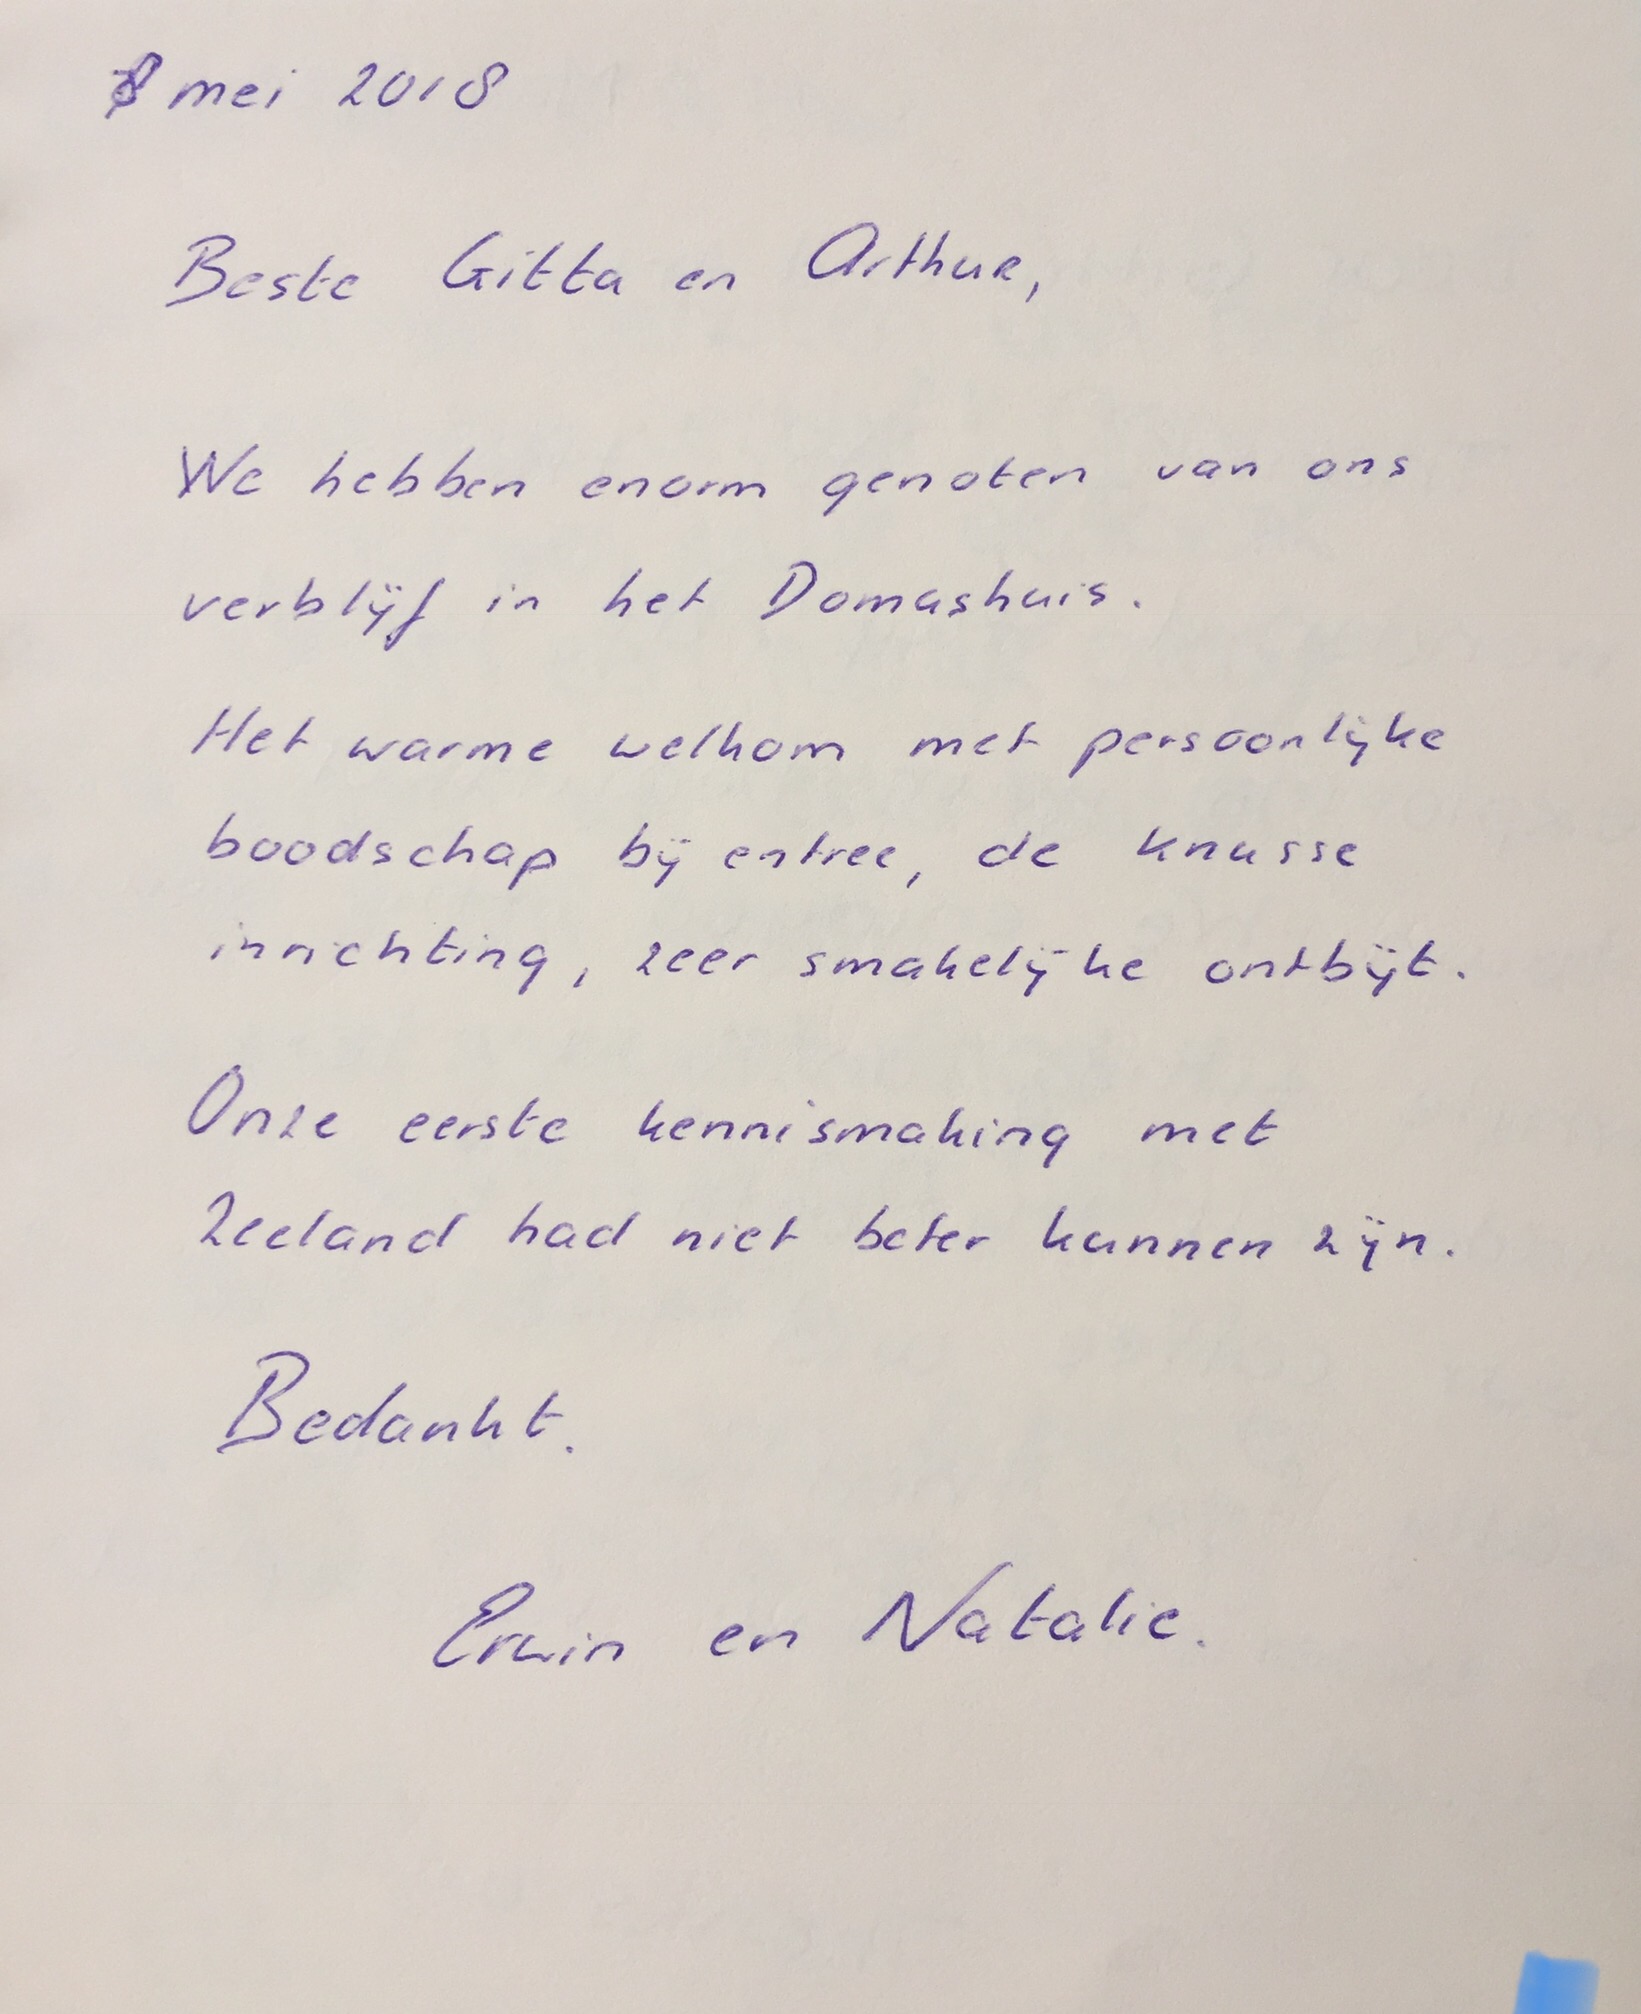 8 mei 2018
Beste Gitta en Arthur,
We hebben enorm genoten van ons
verblijf in het Domashuis.
Het warme welkom met persoonlijke
boodschap bij entree, de knusse
inrichting, zeer smakelijke ontbijt.
Onze eerste kennismaking met
Zeeland had niet beter kunnen zijn.
Bedankt.
Erwin en Natalie.